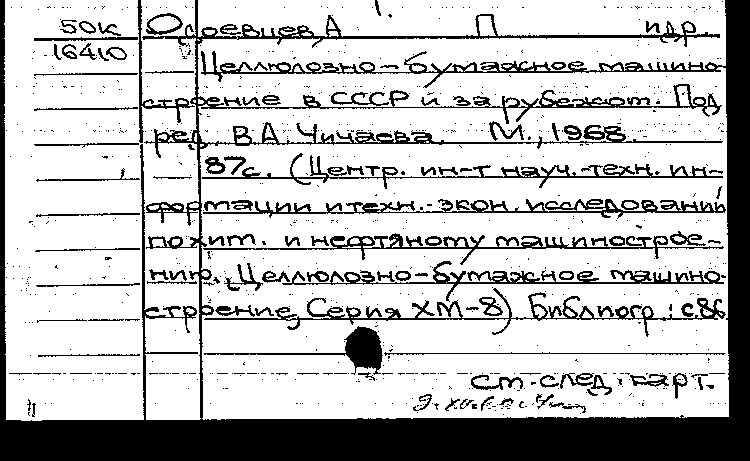 1.
50к Осоевцев, А П идр.
16410
Целлюлозно-бумажное машино-
строение в СССР и за рубежом. Под
ред. В.А. Чичаева. М., 1968.
87с. (Центр. ин-т науч.-техн. ин-
формации и техн.-экон. исследований
по хим. и нефтяному машинострое-
нию. Целлюлозно-бумажное машино-
строение, Серия ХМ-8) Библиогр.: с.86
см. след. карт.